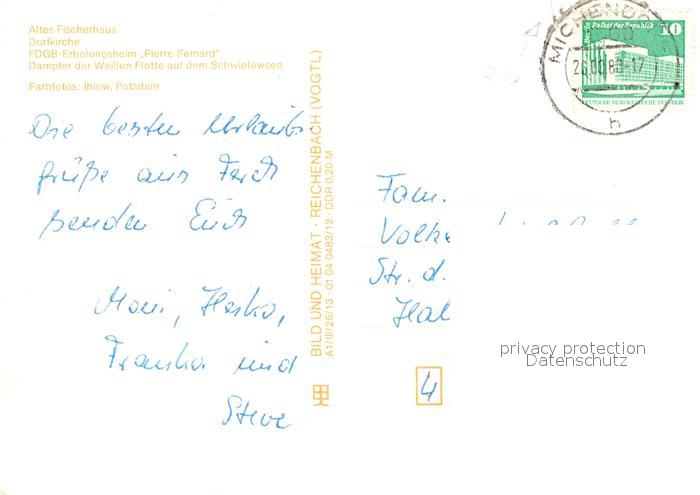 Altes Fischerhaus
Dorfkirche
FDGB-Erholungsheim „Pierre Semard"
Dampfer der Weißen Flotte auf dem Schwielowsee
Farbfotos: Ihlow, Potsdam
Die besten Urlaubs
grüße aus Ferch
senden Euch
Moni, Heiko,
Franka und
Steve
BILD UND HEIMAT · REICHENBACH (VOGTL)
A1/III/26/13 · 01 04 0483/12 · DDR 0,20 M
MICHENDO
h
Palast der Republik 10
DEUTSCHE DEMOKRATISCHE REPUBLIK
Fam.
Volke
Str. d.
Hal
4
privacy protection
Datenschutz